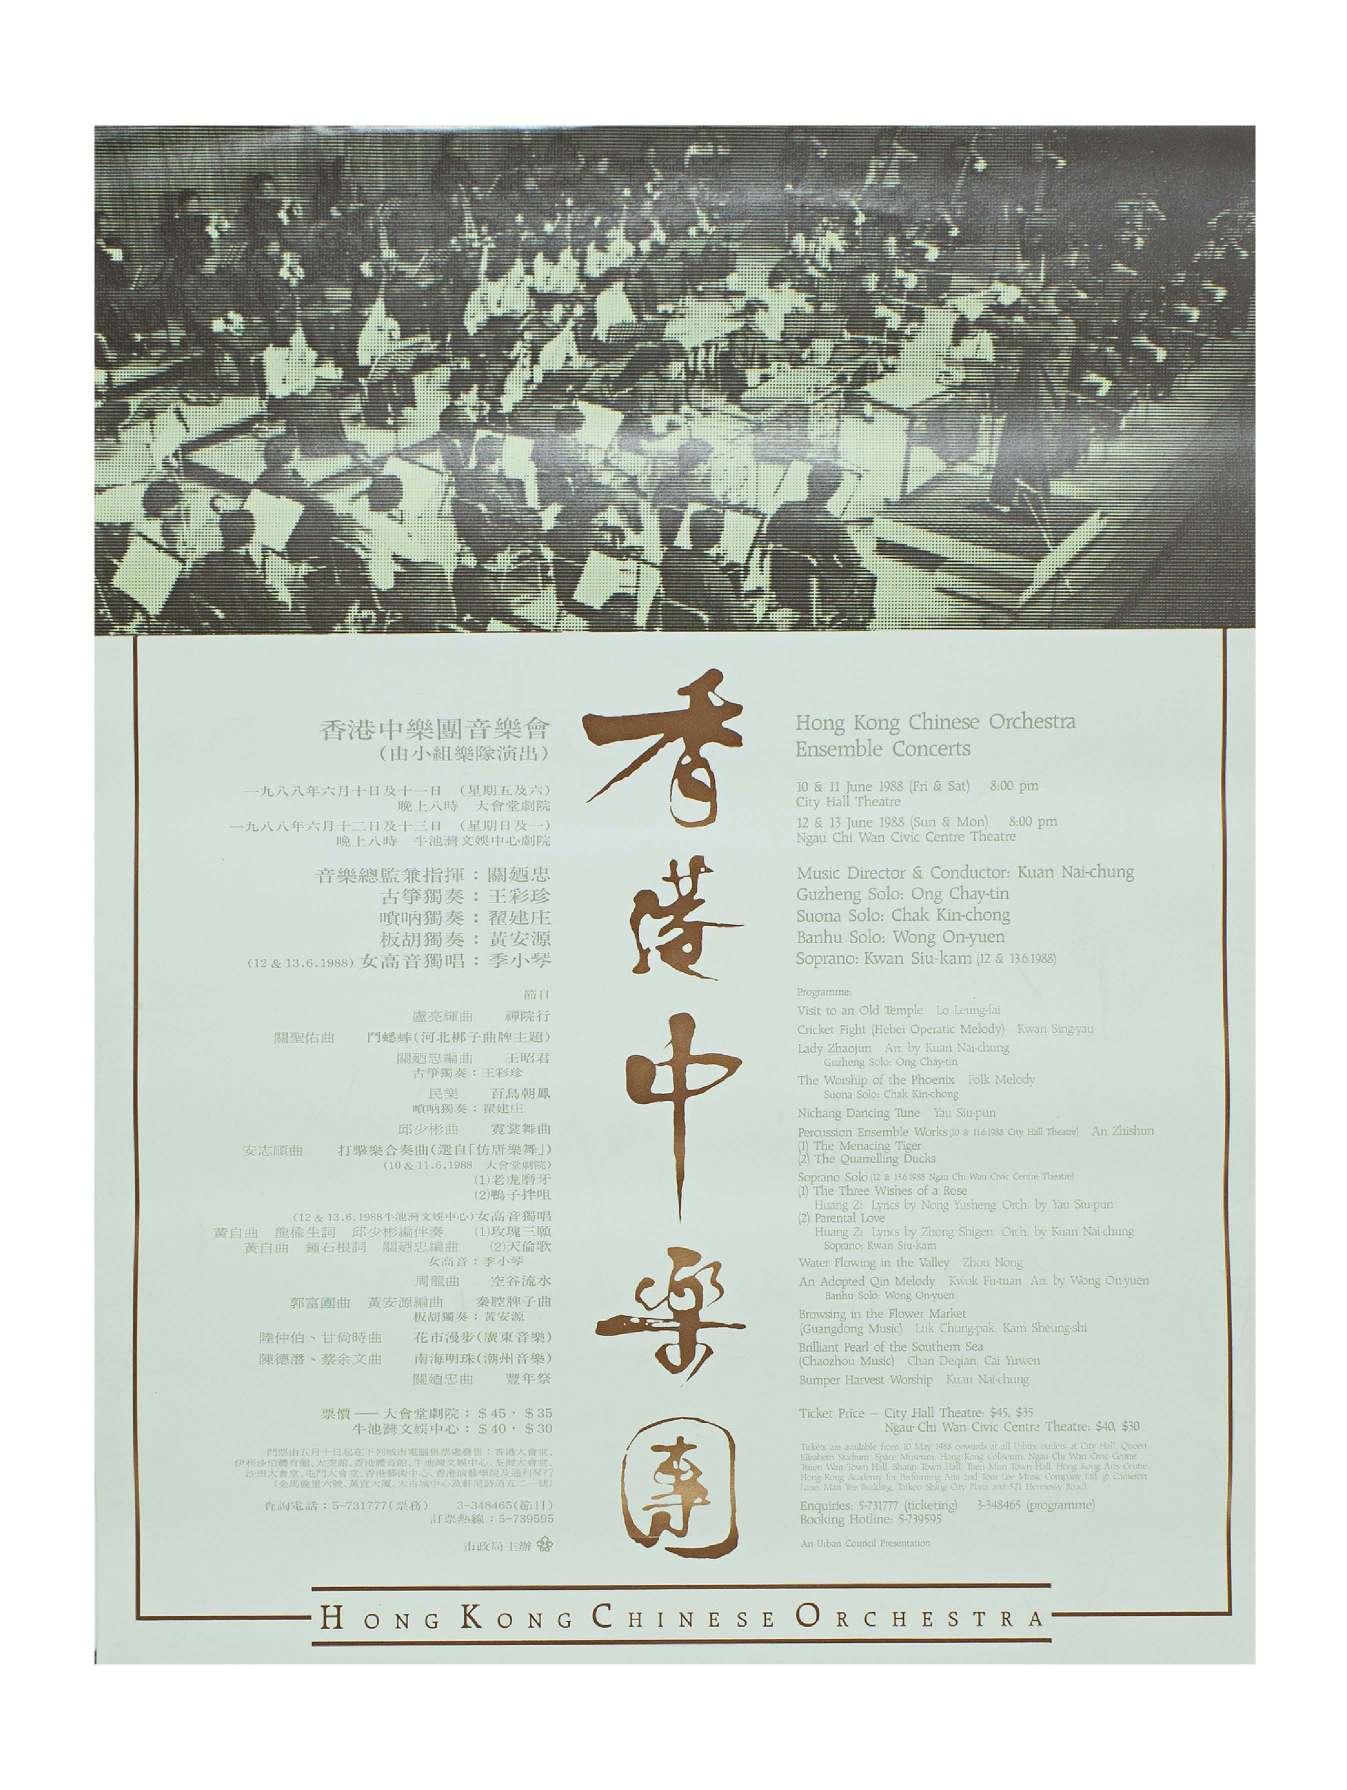 香港中樂團
香港中樂團音樂會
(由小組樂隊演出)
一九八八年六月十日及十一日 (星期五及六)
晚上八時 大會堂劇院
一九八八年六月十二日及十三日 (星期日及一)
晚上八時 牛池灣文娛中心劇院
音樂總監兼指揮：關廼忠
古箏獨奏：王彩珍
嗩吶獨奏：翟建庄
板胡獨奏：黃安源
(12 & 13.6.1988) 女高音獨唱：季小琴
節目
盧亮輝曲 禪院行
關聖佑曲 鬥蟋蟀(河北梆子曲牌主題)
關廼忠編曲 王昭君
古箏獨奏：王彩珍
民樂 百鳥朝鳳
嗩吶獨奏：翟建庄
邱少彬曲 霓裳舞曲
安志順曲 打擊樂合奏曲(選自「仿唐樂舞」)
(10 & 11.6.1988 大會堂劇院)
(1)老虎磨牙
(2)鴨子拌咀
(12 & 13.6.1988牛池灣文娛中心)女高音獨唱
黃自曲 龍榆生詞 邱少彬編伴奏 (1)玫瑰三願
黃自曲 鍾石根詞 關廼忠編曲 (2)天倫歌
女高音：季小琴
周龍曲 空谷流水
郭富團曲 黃安源編曲 秦腔牌子曲
板胡獨奏：黃安源
陸仲伯、甘尚時曲 花市漫步(廣東音樂)
陳德潛、蔡余文曲 南海明珠(潮州音樂)
關廼忠曲 豐年祭
票價 — 大會堂劇院：$45，$35
牛池灣文娛中心：$40，$30
門票由五月十日起在下列城市電腦售票處發售：香港大會堂、
伊利沙伯體育館、太空館、香港體育館、牛池灣文娛中心、荃灣大會堂、
沙田大會堂、屯門大會堂、香港藝術中心、香港演藝學院及通利琴行
(金馬倫里六號、萬宜大廈、太古城中心及軒尼詩道五二一號)
查詢電話：5-731777(票務) 3-348465(節目)
訂票熱線：5-739595
市政局主辦
Hong Kong Chinese Orchestra
Ensemble Concerts
10 & 11 June 1988 (Fri & Sat) 8:00 pm
City Hall Theatre
12 & 13 June 1988 (Sun & Mon) 8:00 pm
Ngau Chi Wan Civic Centre Theatre
Music Director & Conductor: Kuan Nai-chung
Guzheng Solo: Ong Chay-tin
Suona Solo: Chak Kin-chong
Banhu Solo: Wong On-yuen
Soprano: Kwan Siu-kam (12 & 13.6.1988)
Programme:
Visit to an Old Temple Lo Leung-fai
Cricket Fight (Hebei Operatic Melody) Kwan Sing-yau
Lady Zhaojun Arr. by Kuan Nai-chung
Guzheng Solo: Ong Chay-tin
The Worship of the Phoenix Folk Melody
Suona Solo: Chak Kin-chong
Nichang Dancing Tune Yau Siu-pun
Percussion Ensemble Works (10 & 11.6.1988 City Hall Theatre) An Zhishun
(1) The Menacing Tiger
(2) The Quarrelling Ducks
Soprano Solo (12 & 13.6.1988 Ngau Chi Wan Civic Centre Theatre)
(1) The Three Wishes of a Rose
Huang Zi Lyrics by Nong Yusheng Orch. by Yau Siu-pun
(2) Parental Love
Huang Zi Lyrics by Zhong Shigen Orch. by Kuan Nai-chung
Soprano: Kwan Siu-kam
Water Flowing in the Valley Zhou Nong
An Adopted Qin Melody Kwok Fu-tuan Arr. by Wong On-yuen
Banhu Solo: Wong On-yuen
Browsing in the Flower Market
(Guangdong Music) Luk Chung-pak, Kam Sheung-shi
Brilliant Pearl of the Southern Sea
(Chaozhou Music) Chan Deqian, Cai Yuwen
Bumper Harvest Worship Kuan Nai-chung
Ticket Price – City Hall Theatre: $45, $35
Ngau Chi Wan Civic Centre Theatre: $40, $30
Tickets are available from 10 May 1988 onwards at all Urbtix outlets at City Hall, Queen
Elizabeth Stadium, Space Museum, Hong Kong Coliseum, Ngau Chi Wan Civic Centre,
Tsuen Wan Town Hall, Shatin Town Hall, Tuen Mun Town Hall, Hong Kong Arts Centre,
Hong Kong Academy for Performing Arts and Tom Lee Music Company Ltd. (6 Cameron
Lane, Man Yee Building, Taikoo Shing City Plaza and 521 Hennessy Road).
Enquiries: 5-731777 (ticketing) 3-348465 (programme)
Booking Hotline: 5-739595
An Urban Council Presentation
HONG KONG CHINESE ORCHESTRA